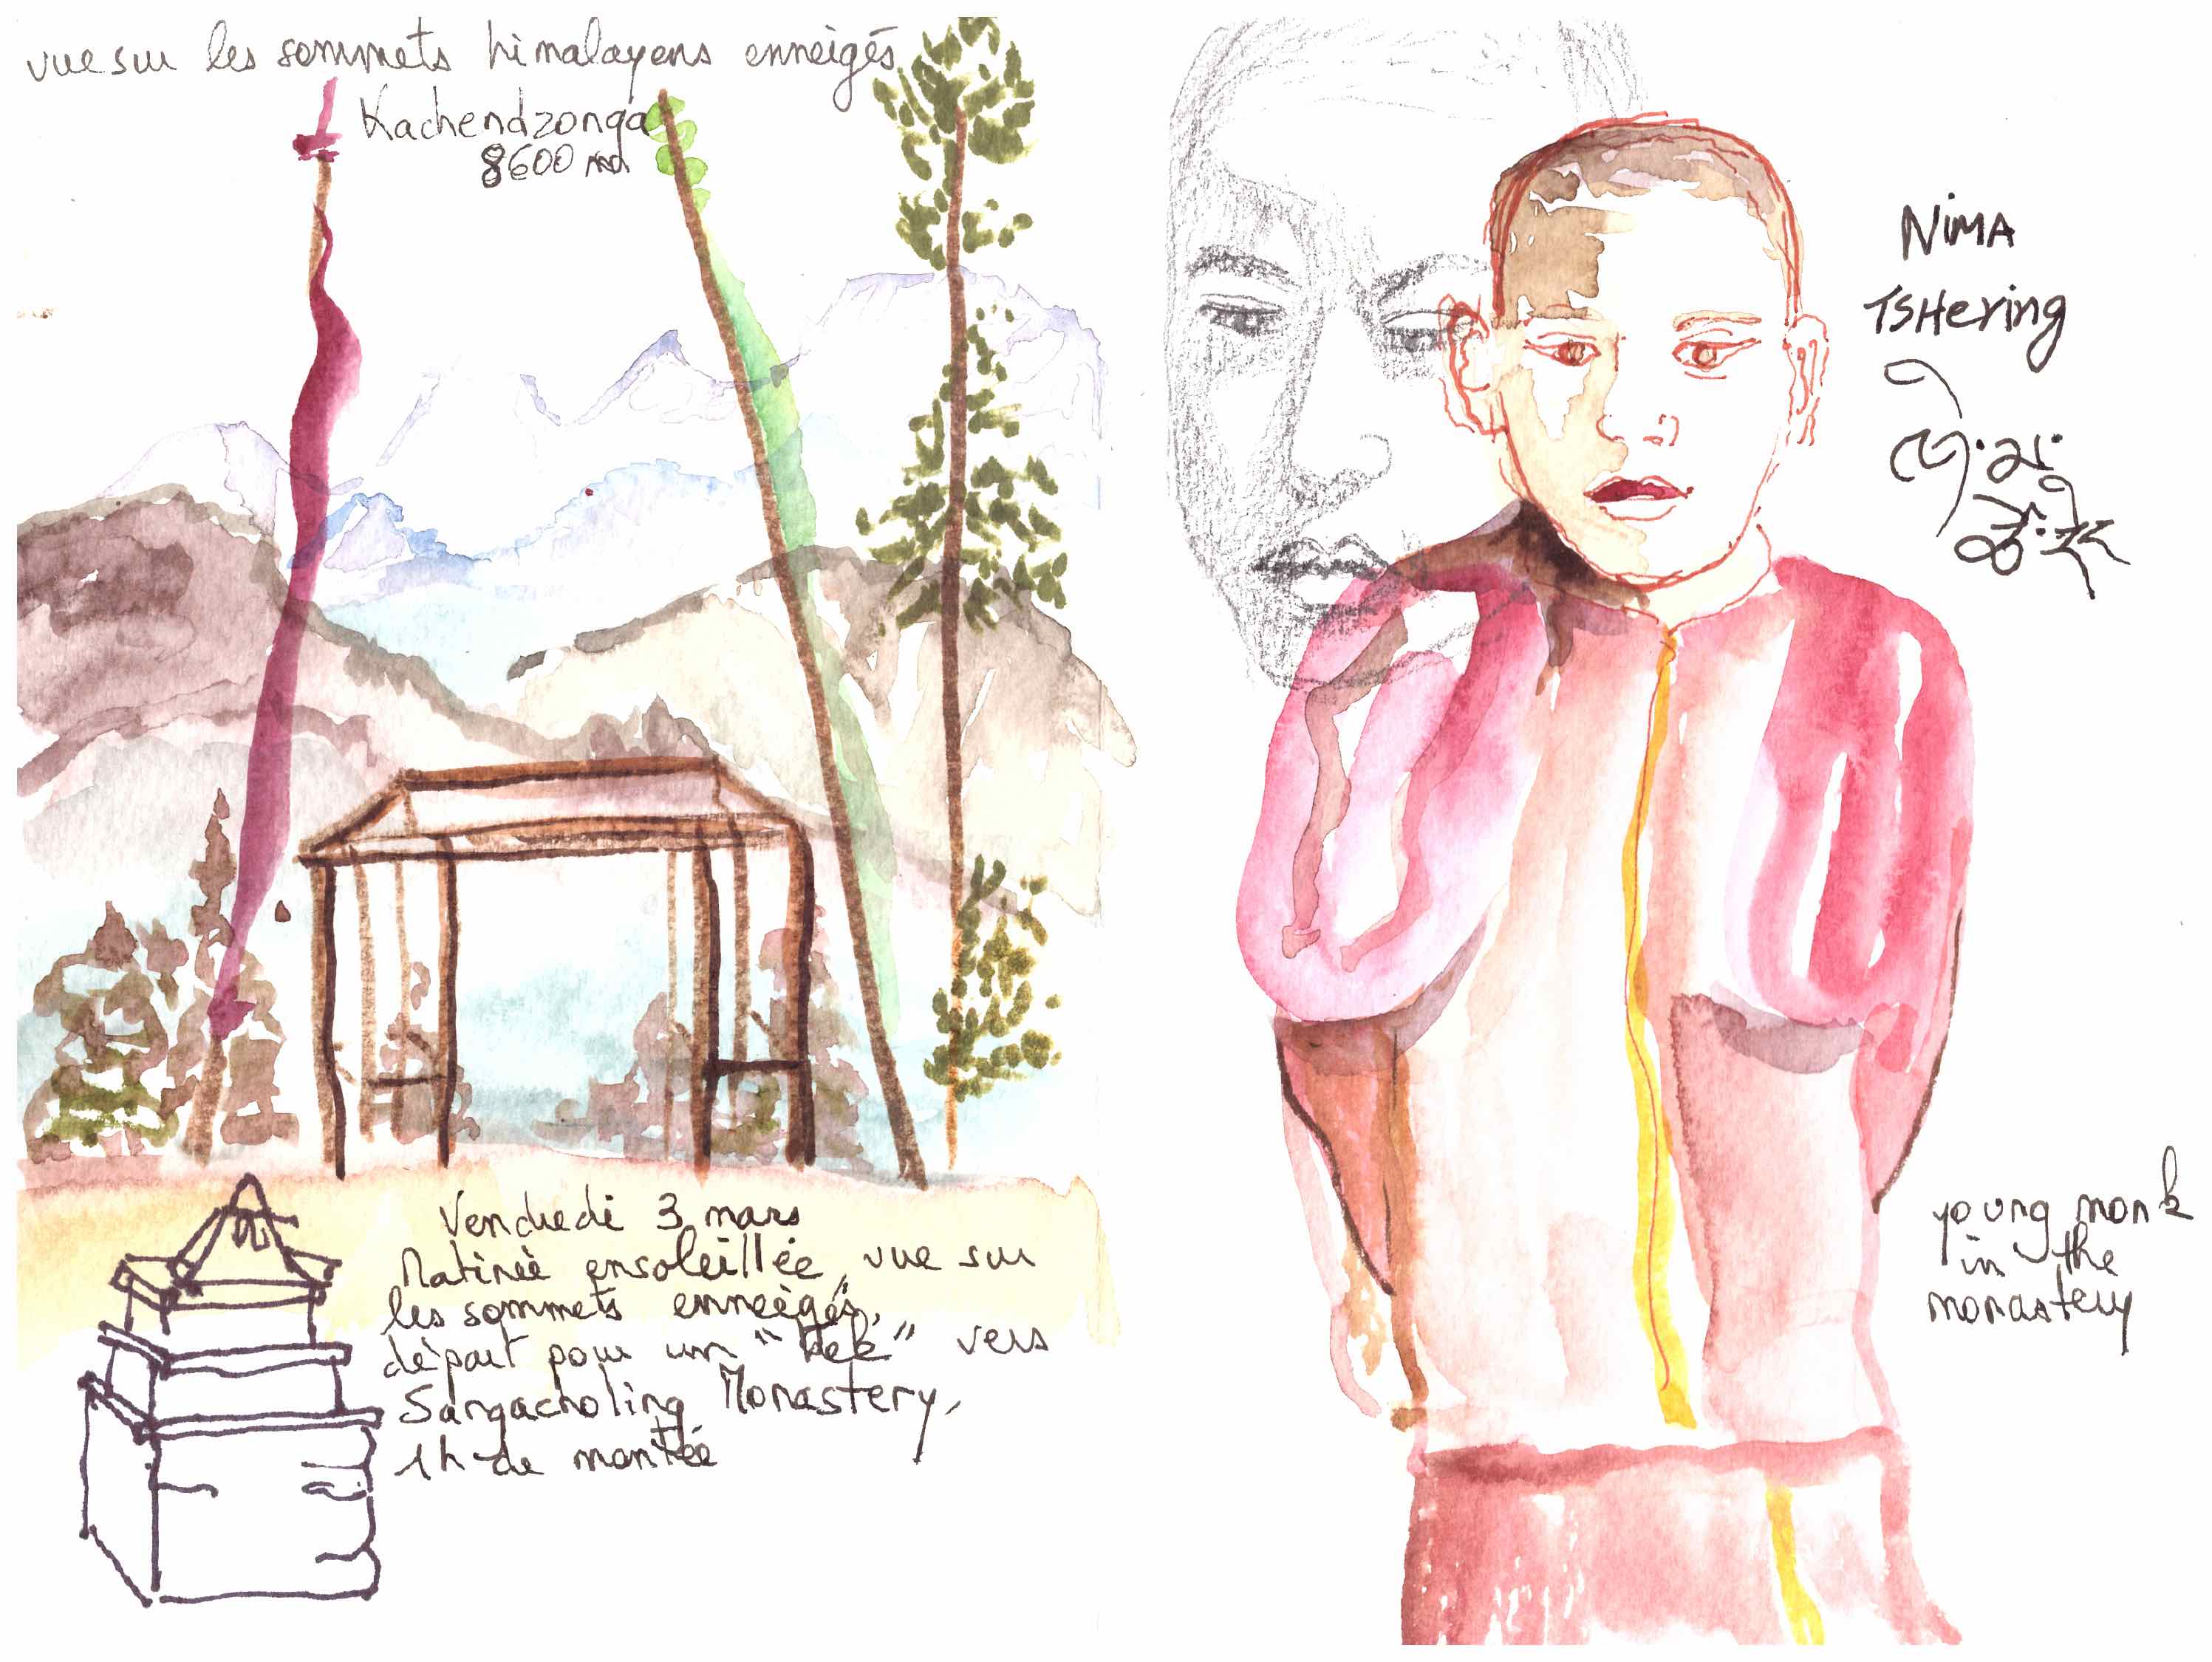 vue sur les sommets himalayens enneigés
Kachendzonga
8600 m
Vendredi 3 mars
Matinée ensoleillée, vue sur
les sommets enneigés,
départ pour un "trek" vers
Sangacholing Monastery,
1h de montée
NIMA
TSHering
ཉི་མ་
ཚེ་རིང
young monk
in the
monastery